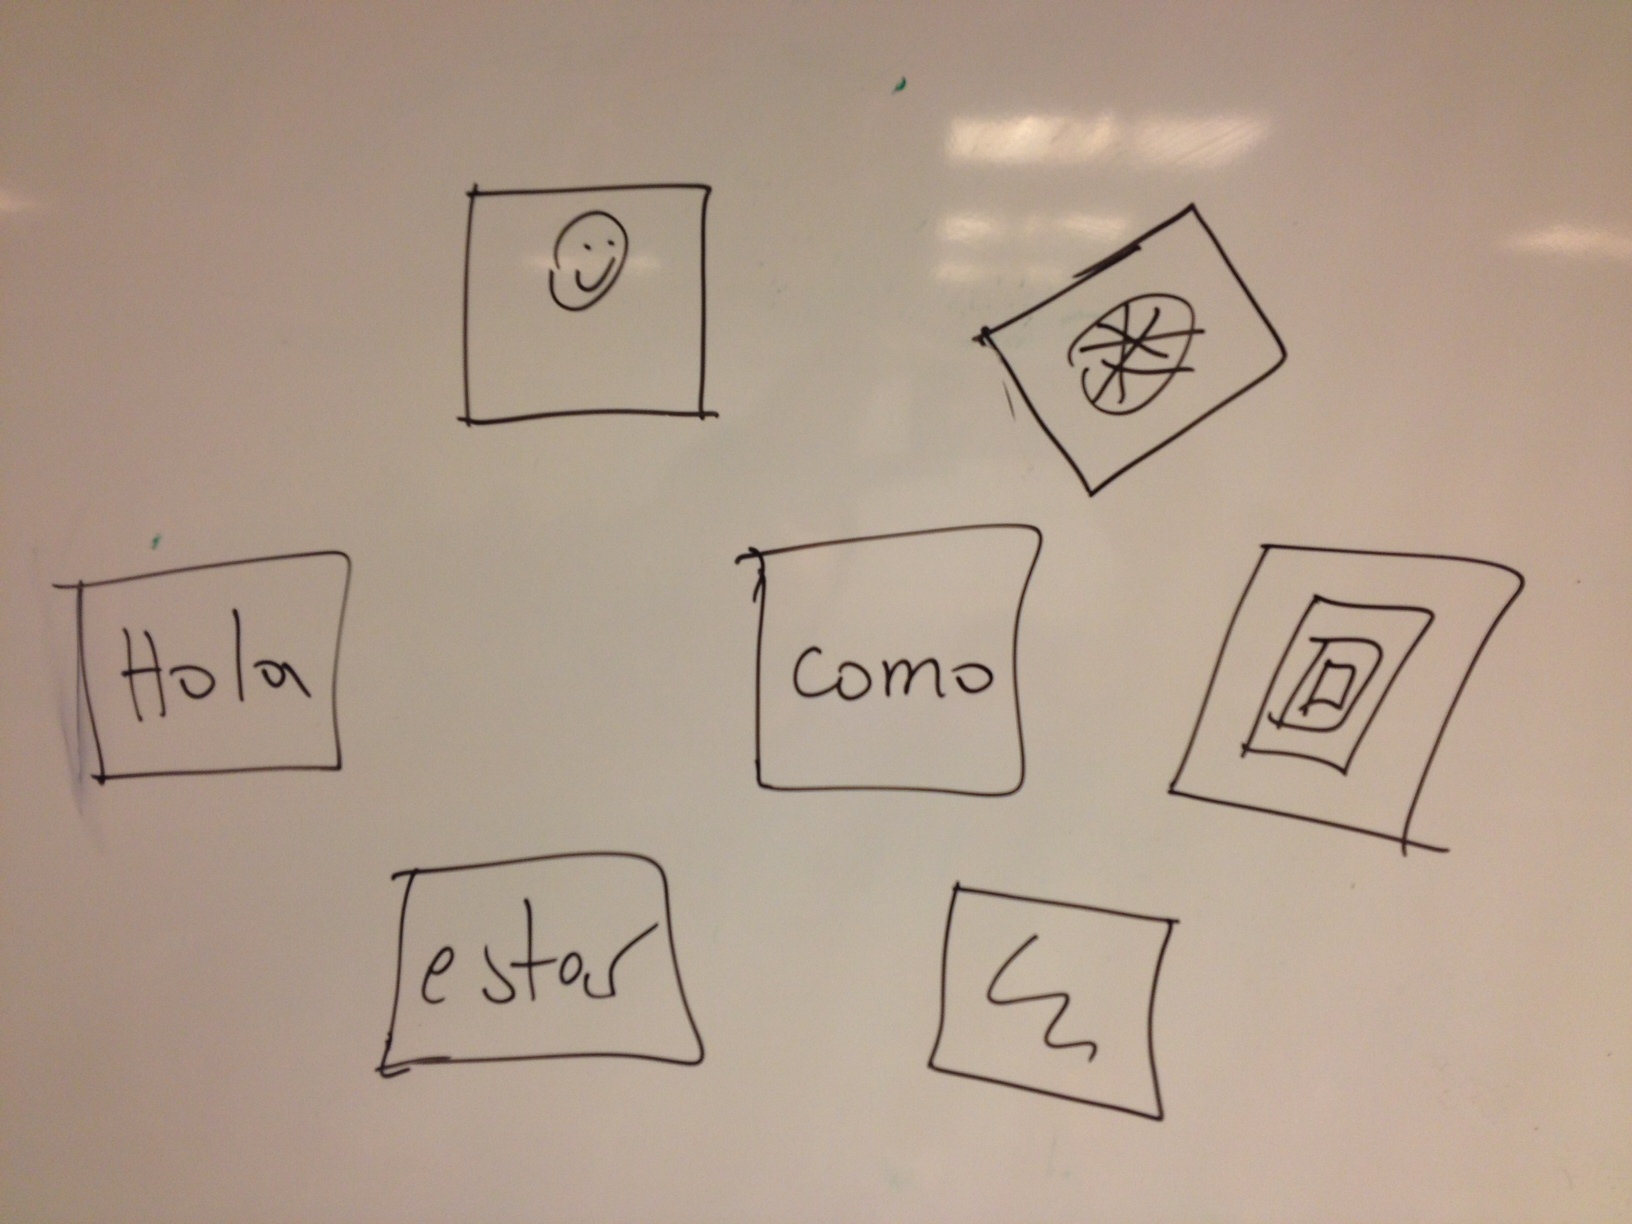 Hola
como
estas